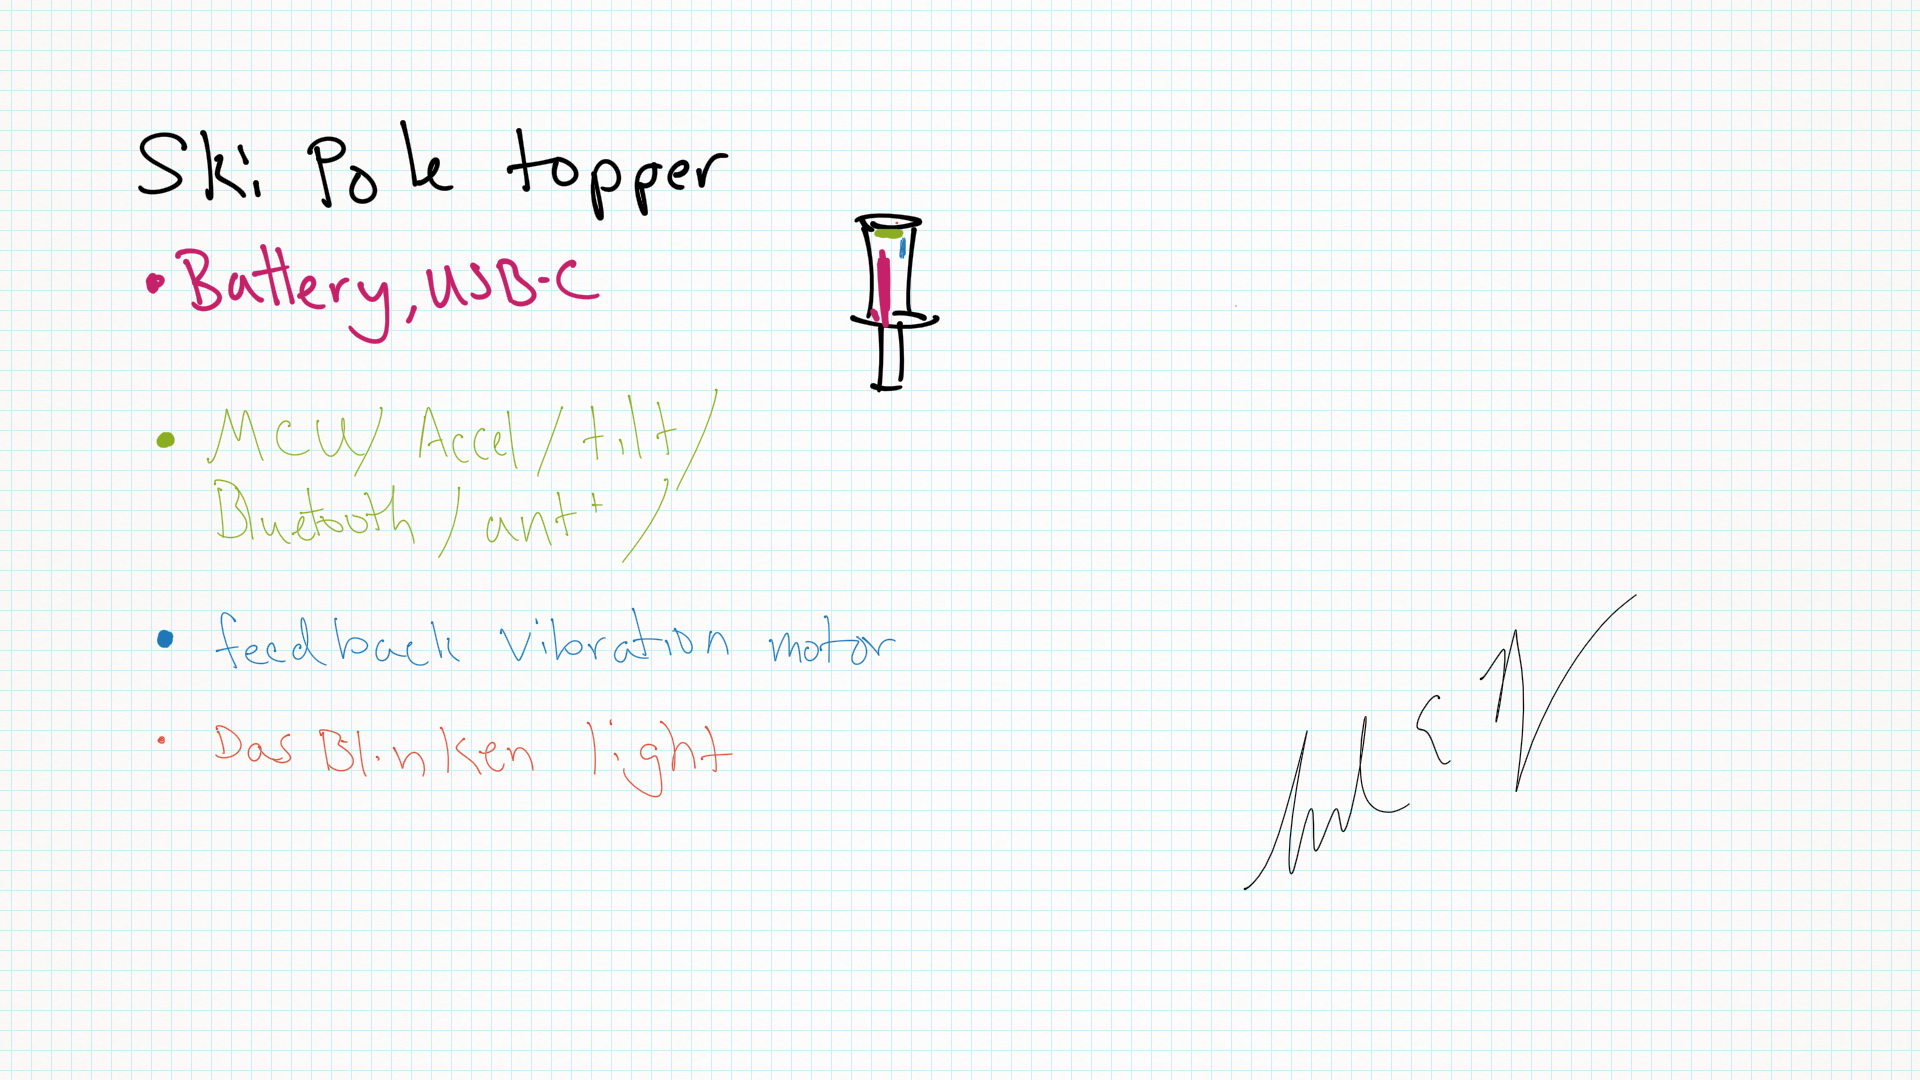 Ski Pole topper
• Battery, USB-C
• MCU/ Accel/tilt/
Bluetooth/ant+/
• feedback vibration motor
• Das Blinken light